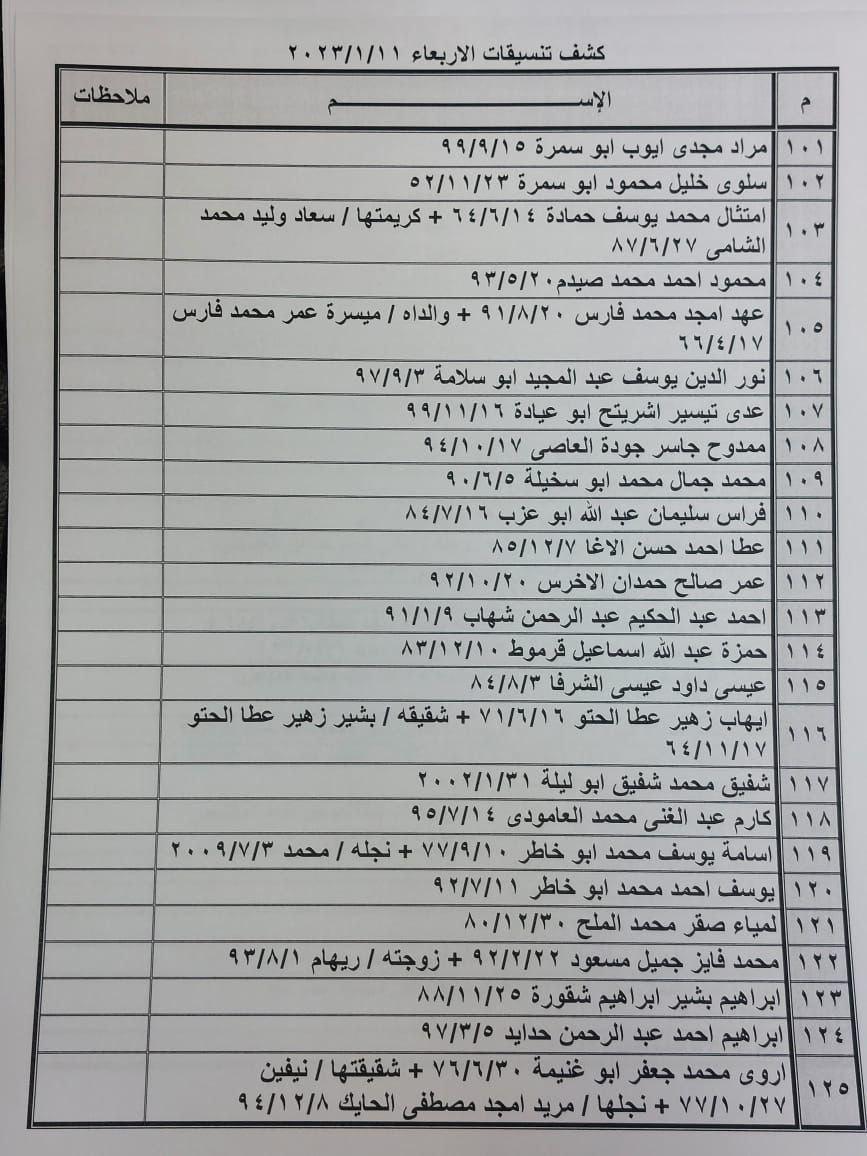 كشف تنسيقات الاربعاء ٢٠٢٣/١/١١
م الإســــم ملاحظات
١٠١ مراد مجدى ايوب ابو سمرة ٩٩/٩/١٥
١٠٢ سلوى خليل محمود ابو سمرة ٥٢/١١/٢٣
١٠٣ امتثال محمد يوسف حمادة ٦٤/٦/١٤ + كريمتها / سعاد وليد محمد
الشامى ٨٧/٦/٢٧
١٠٤ محمود احمد محمد صيدم ٩٣/٥/٢٠
١٠٥ عهد امجد محمد فارس ٩١/٨/٢٠ + والداه / ميسرة عمر محمد فارس
٦٦/٤/١٧
١٠٦ نور الدين يوسف عبد المجيد ابو سلامة ٩٧/٩/٣
١٠٧ عدى تيسير اشريتح ابو عيادة ٩٩/١١/١٦
١٠٨ ممدوح جاسر جودة العاصى ٩٤/١٠/١٧
١٠٩ محمد جمال محمد ابو سخيلة ٩٠/٦/٥
١١٠ فراس سليمان عبد الله ابو عزب ٨٤/٧/١٦
١١١ عطا احمد حسن الاغا ٨٥/١٢/٧
١١٢ عمر صالح حمدان الاخرس ٩٢/١٠/٢٠
١١٣ احمد عبد الحكيم عبد الرحمن شهاب ٩١/١/٩
١١٤ حمزة عبد الله اسماعيل قرموط ٨٣/١٢/١٠
١١٥ عيسى داود عيسى الشرفا ٨٤/٨/٣
١١٦ ايهاب زهير عطا الحتو ٧١/٦/١٦ + شقيقه / بشير زهير عطا الحتو
٦٤/١١/١٧
١١٧ شفيق محمد شفيق ابو ليلة ٢٠٠٢/١/٣١
١١٨ كارم عبد الغنى محمد العامودى ٩٥/٧/١٤
١١٩ اسامة يوسف محمد ابو خاطر ٧٧/٩/١٠ + نجله / محمد ٢٠٠٩/٧/٣
١٢٠ يوسف احمد محمد ابو خاطر ٩٢/٧/١١
١٢١ لمياء صقر محمد الملح ٨٠/١٢/٣٠
١٢٢ محمد فايز جميل مسعود ٩٢/٢/٢٢ + زوجته / ريهام ٩٣/٨/١
١٢٣ ابراهيم بشير ابراهيم شقورة ٨٨/١١/٢٥
١٢٤ ابراهيم احمد عبد الرحمن حدايد ٩٧/٣/٥
١٢٥ اروى محمد جعفر ابو غنيمة ٧٦/٦/٣٠ + شقيقتها / نيفين
٧٧/١٠/٢٧ + نجلها / مريد امجد مصطفى الحايك ٩٤/١٢/٨